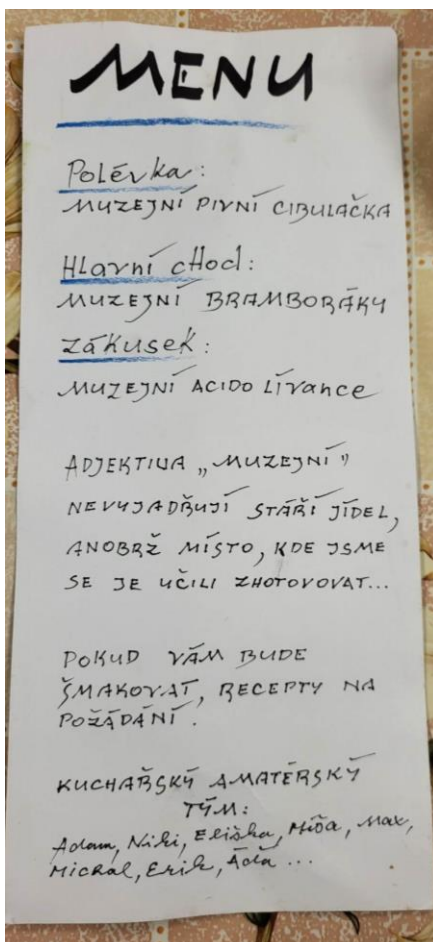 MENU
Polévka:
MUZEJNÍ PIVNÍ CIBULAČKA
Hlavní chod:
MUZEJNÍ BRAMBORÁKY
Zákusek:
MUZEJNÍ ACIDO LÍVANCE
ADJEKTIVA „MUZEJNÍ"
NEVYJADŘUJÍ STÁŘÍ JÍDEL,
ANOBRŽ MÍSTO, KDE JSME
SE JE UČILI ZHOTOVOVAT...
POKUD VÁM BUDE
ŠMAKOVAT, RECEPTY NA
POŽÁDÁNÍ.
KUCHAŘSKÝ AMATÉRSKÝ
TÝM:
Adam, Niki, Eliška, Míša, Max,
Michal, Erik, Áďa ...